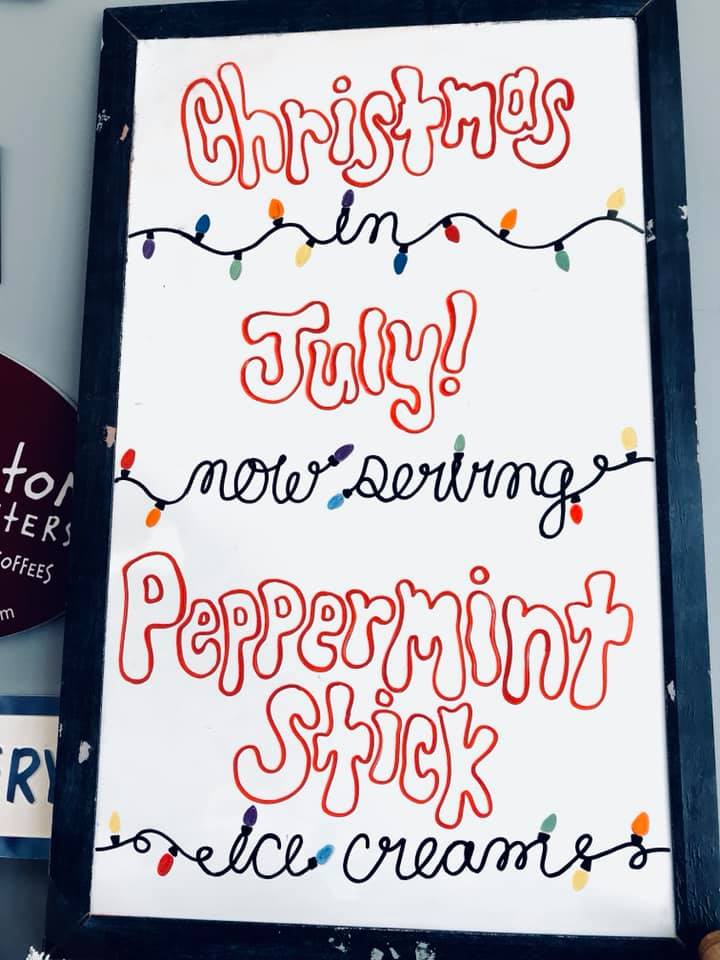 Christmas
in
July!
now serving
Peppermint
Stick
ice creams
TERS
COFFEES
RY